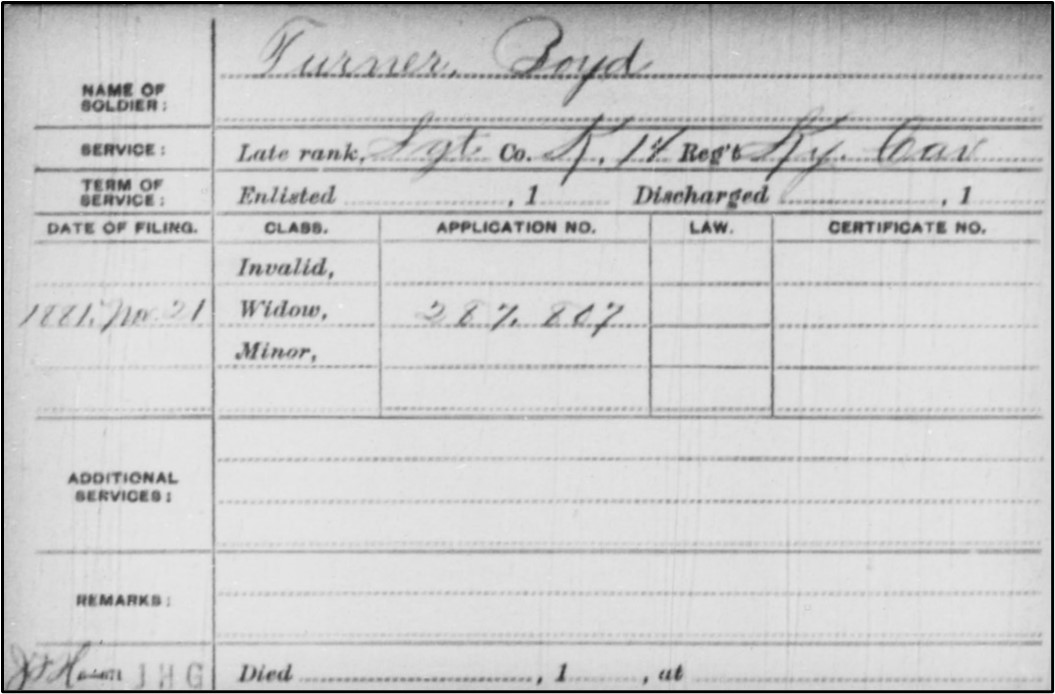 NAME OF SOLDIER: Turner, Boyd
SERVICE: Late rank, Sgt Co. K, 14 Reg't Ky. Cav
TERM OF SERVICE: Enlisted , 1 Discharged , 1
DATE OF FILING. CLASS. APPLICATION NO. LAW. CERTIFICATE NO.
Invalid,
1881, No. 21 Widow, 287,807
Minor,
ADDITIONAL SERVICES:
REMARKS:
1HG Died , 1 , at